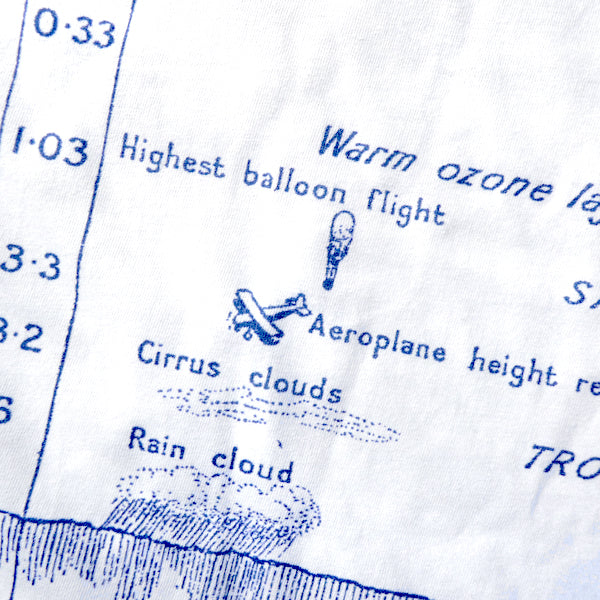 0·33
1·03
Warm ozone
Highest balloon flight
3·3
Aeroplane height
Cirrus clouds
Rain cloud